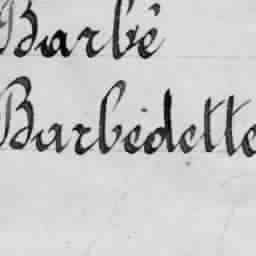 Barbé
Barbedette